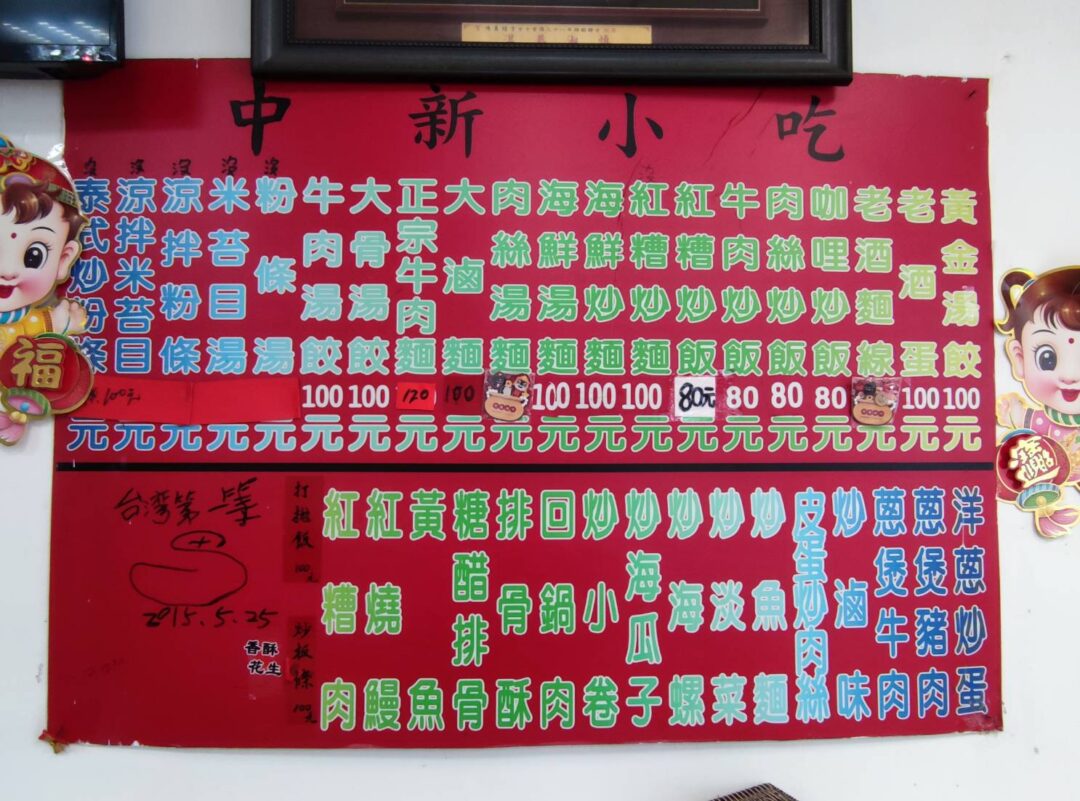 中新小吃
黃金湯餃100元
老酒蛋100元
老酒麵線元
咖哩炒飯80元
肉絲炒飯80元
牛肉炒飯80元
紅糟炒飯80元元
紅糟炒麵100元
海鮮炒麵100元
海鮮湯麵100元
肉絲湯麵元
大滷麵100元
正宗牛肉麵120元
大骨湯餃100元
牛肉湯餃100元
沒粉條湯元
沒米苔目湯元
沒涼拌粉條元
沒涼拌米苔目100元元
沒泰式炒粉條元
洋蔥炒蛋
蔥煲豬肉
蔥煲牛肉
炒滷味
皮蛋炒肉絲
炒魚麵
炒淡菜
炒海螺
炒海瓜子
炒小卷
回鍋肉
排骨酥
糖醋排骨
黃魚
紅燒鰻
紅糟肉
打拋飯100元
炒板條100元
台灣第一等
2015.5.25
香酥
花生
福